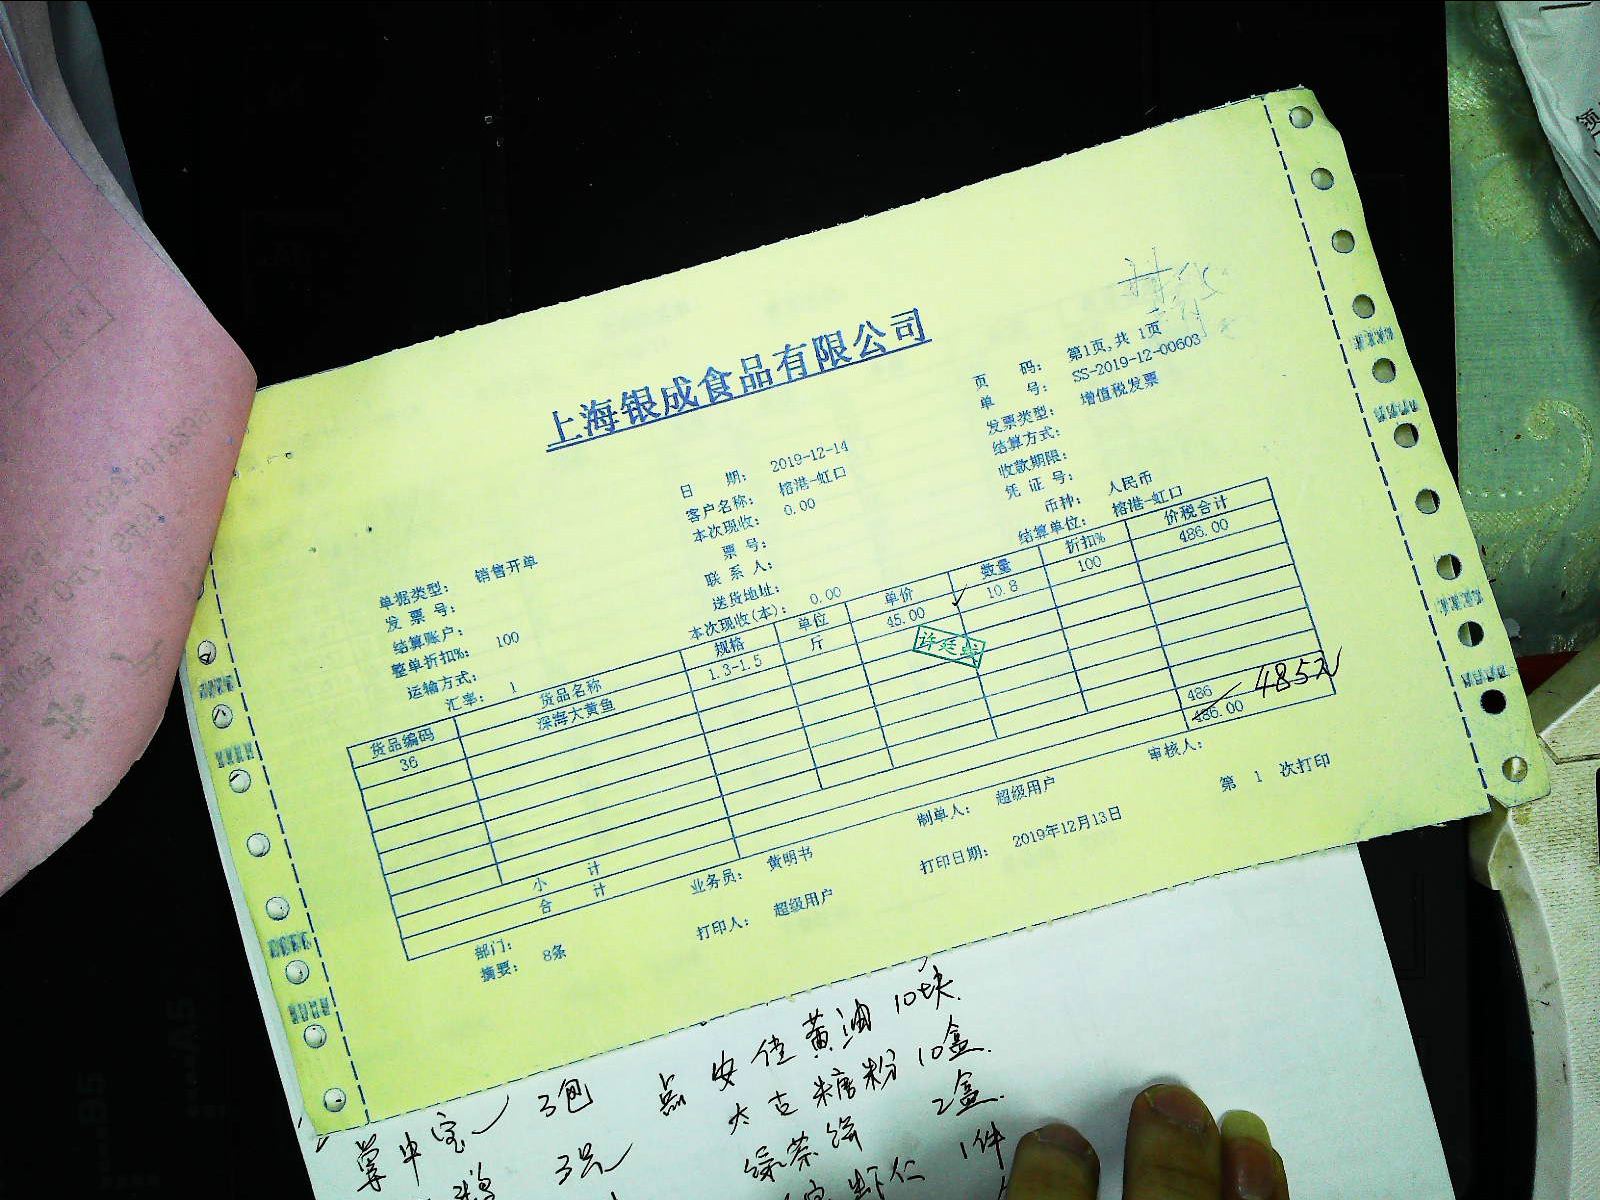 上海银成食品有限公司
页 码: 第1页,共 1页
单 号: SS-2019-12-00603
发票类型: 增值税发票
结算方式:
收款期限:
凭 证 号:
币种: 人民币
结算单位: 榕港-虹口
日 期: 2019-12-14
客户名称: 榕港-虹口
本次现收: 0.00
票 号:
联 系 人:
送货地址:
本次现收(本): 0.00
单据类型: 销售开单
发 票 号:
结算账户:
整单折扣%: 100
运输方式:
汇率: 1
货品编码 货品名称 规格 单位 单价 数量 折扣% 价税合计
36 深海大黄鱼 1.3-1.5 斤 45.00 10.8 100 486.00
小 计 486
合 计 486.00
485
部门: 业务员: 黄明书 制单人: 超级用户 审核人:
摘要: 8条 打印人: 超级用户 打印日期: 2019年12月13日 第 1 次打印
掌中宝 3包
3只
安佳黄油 10块
太古糖粉 10盒
2盒
虾仁 1件